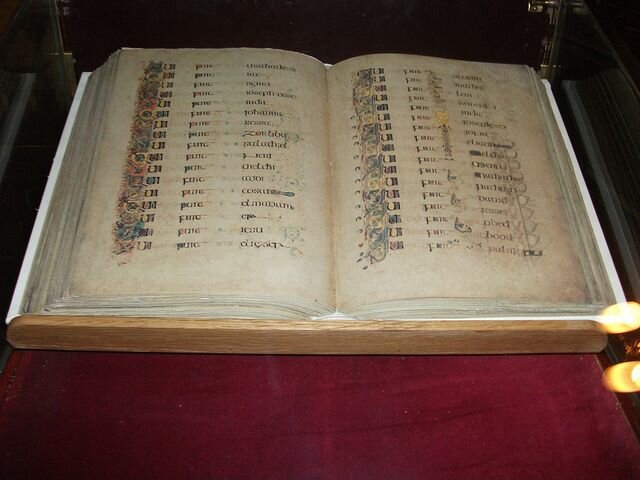 QUI fuit mathathiae
QUI fuit
QUI fuit semei
QUI fuit ioseph osse
QUI fuit iuda
QUI fuit iohanna
QUI fuit ressa
QUI fuit zorbba
QUI fuit salathiel
QUI fuit neri
QUI fuit melchi
QUI fuit addi
QUI fuit cosam
QUI fuit elmadam
QUI fuit er
QUI fuit iesu
QUI fuit eliezer
QUI fuit
QUI fuit matthat
QUI fuit leui
QUI fuit
QUI fuit iuda
QUI fuit ioseph
QUI fuit iona
QUI fuit
QUI fuit melcha
QUI fuit
QUI fuit mathathia
QUI fuit nathan
QUI fuit dauid
QUI fuit iesse
QUI fuit obed
QUI fuit boos
QUI fuit